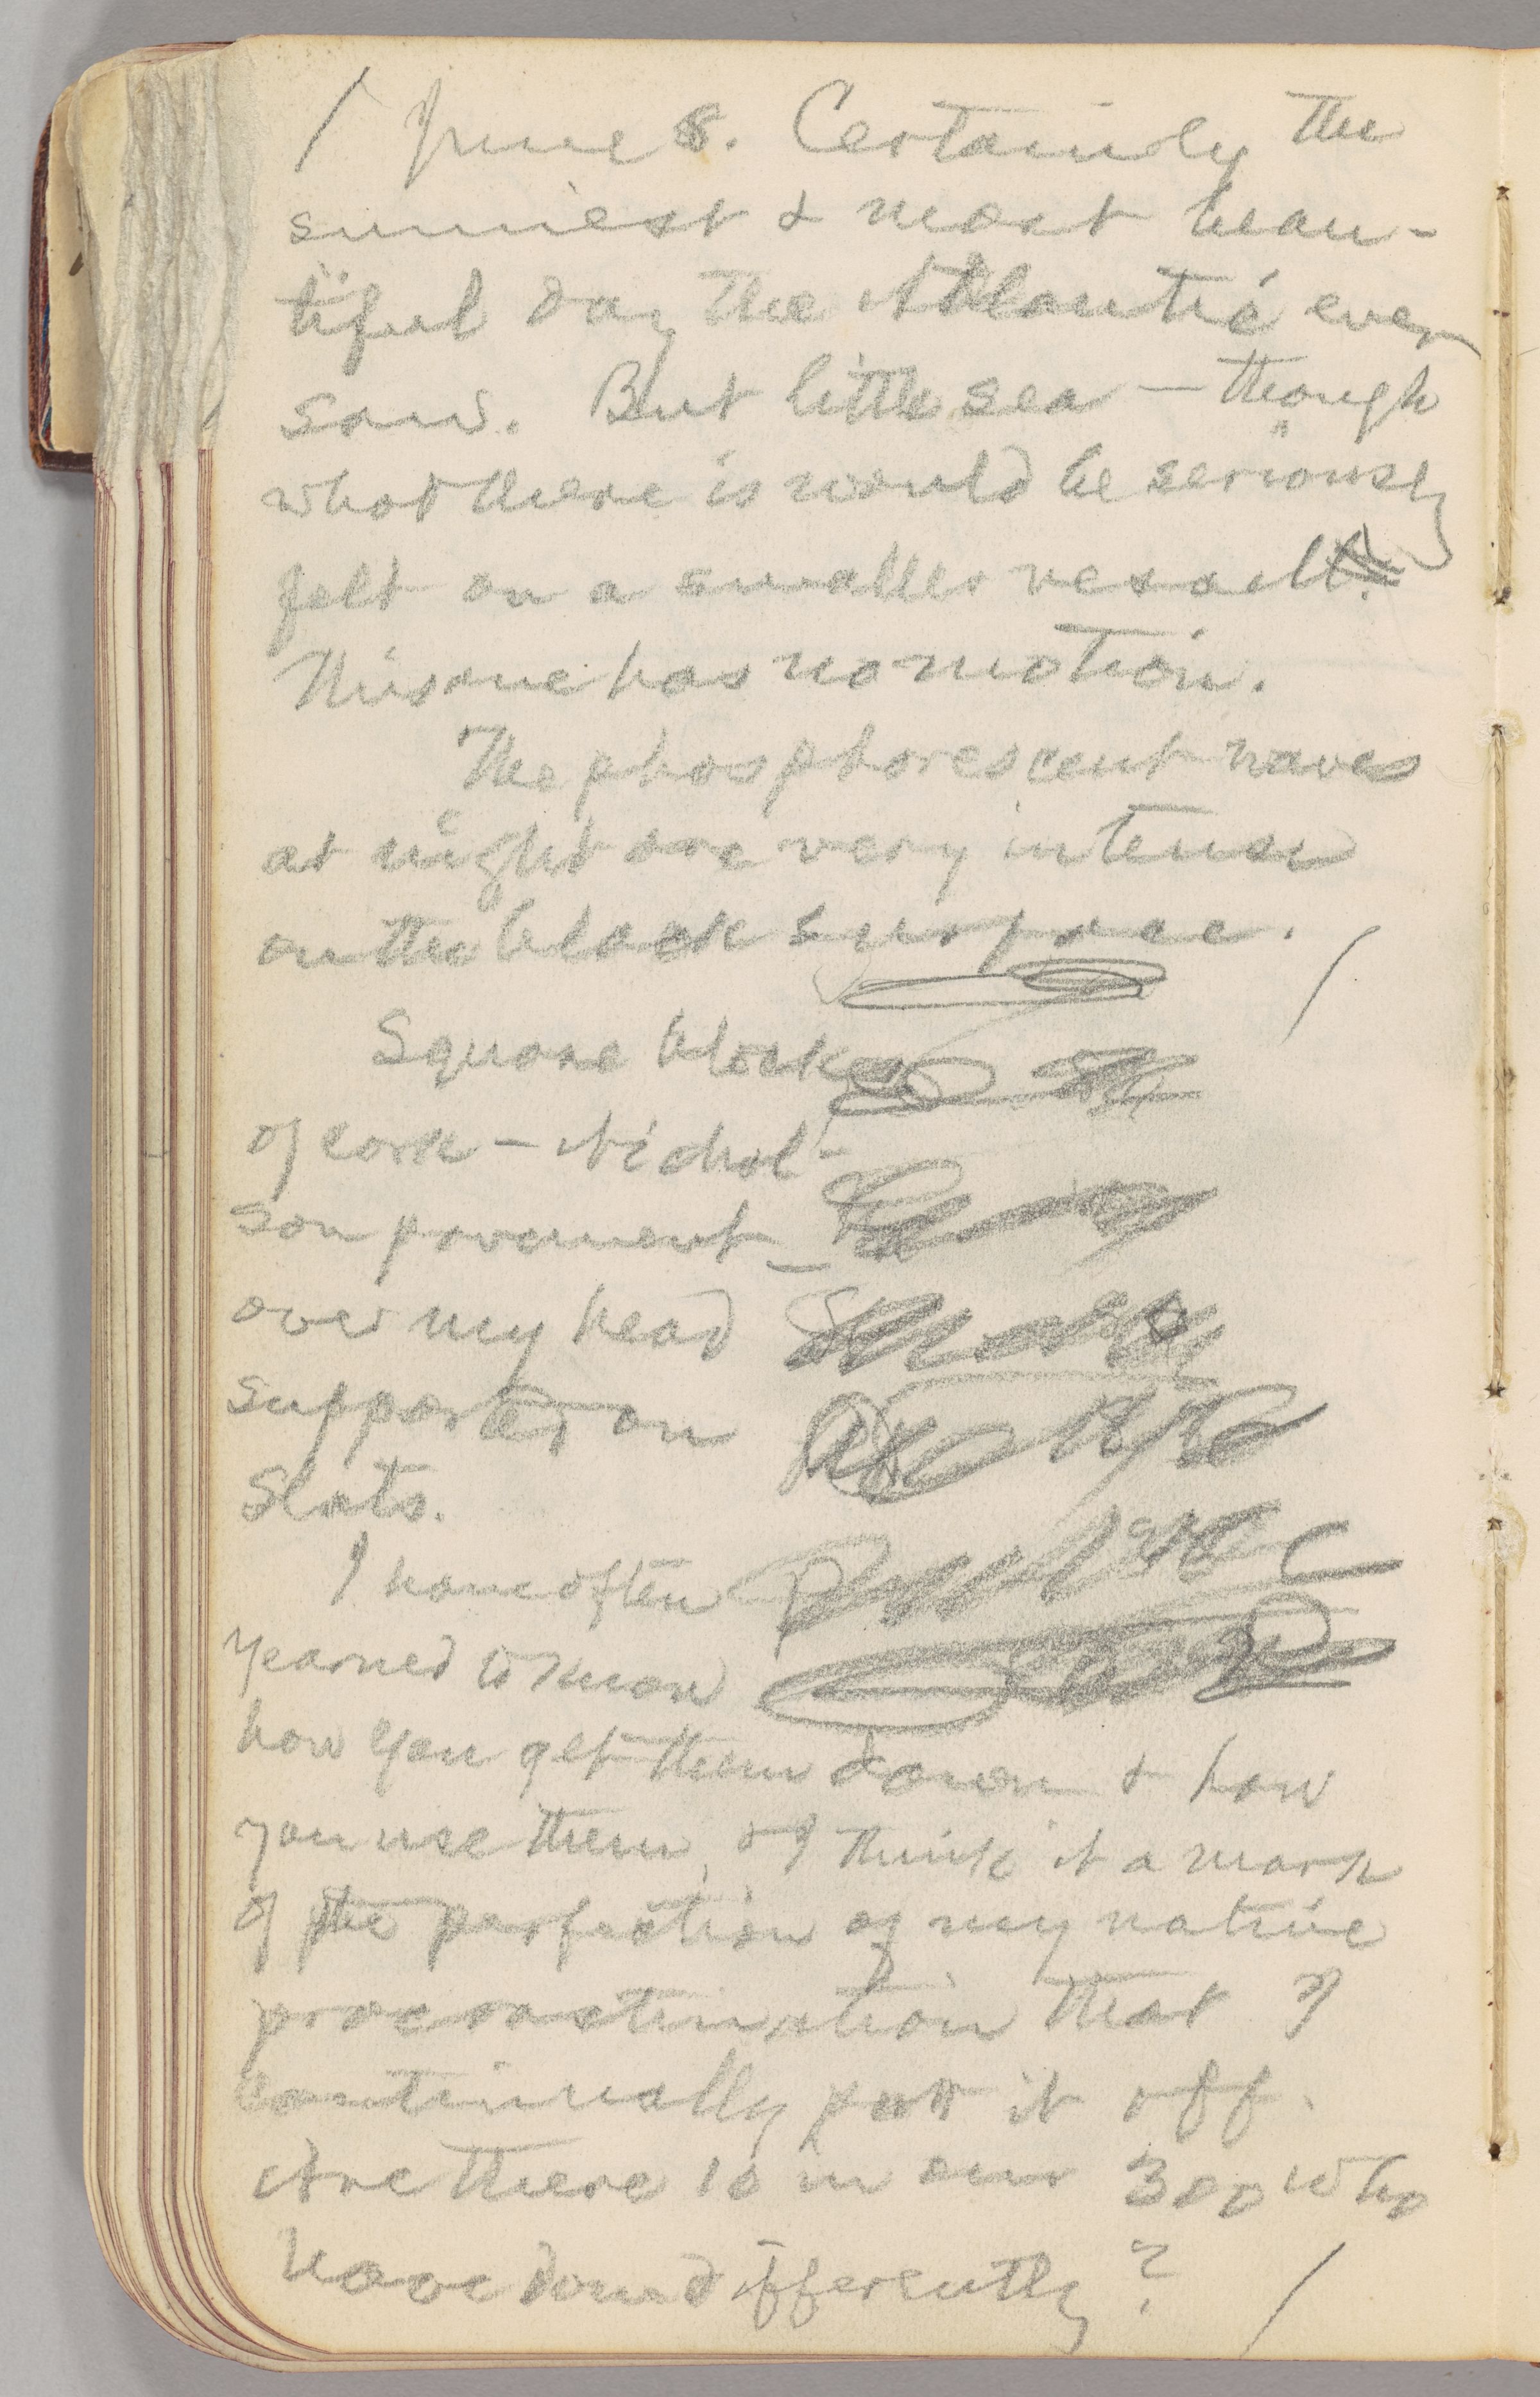 / June 8. Certainly the
sunniest & most beau-
tiful day the Atlantic ever
saw. But little sea — though
what there is would be seriously
felt on a smaller vessel
This one has no motion.
The phosphorescent waves
at night are very intense
on the black surface. /
Square blocks
of cork — Nichol-
son pavement —
over my head
supported on
slats.
I have often
yearned to know
how you get them down & how
you use them, & I think it a mark
of the perfection of my native
procrastination that I
continually put it off.
Are there 10 in our 300 who
have done differently? /